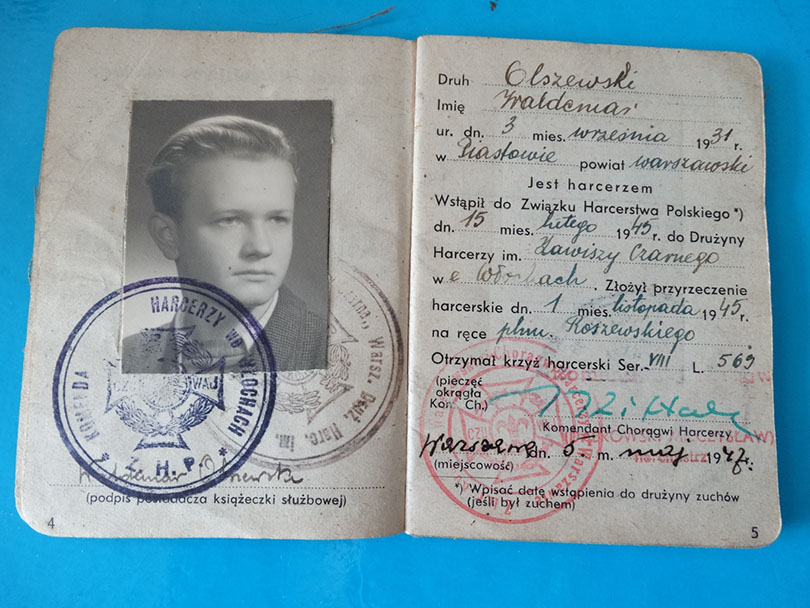 HARCERZY WE WŁOCHACH
* KOMENDA
CZ WAJ
Z. H. P.
Warsz. Pocz. Harc. im.
Waldemar Olszewski
(podpis posiadacza książeczki służbowej)
4
Druh Olszewski
Imię Waldemar
ur. dn. 3 mies. września 1931 r.
w Piastowie powiat warszawski
Jest harcerzem
Wstąpił do Związku Harcerstwa Polskiego*)
dn. 15 mies. lutego 1945 r. do Drużyny
Harcerzy im. Zawiszy Czarnego
we Włochach. Złożył przyrzeczenie
harcerskie dn. 1 mies. listopada 1945 r.
na ręce phm. Koszewskiego
Otrzymał krzyż harcerski Ser. VIII L. 569
(pieczęć
okrągła
Kom. Ch.)
Komendant Chorągwi Harcerzy
Warszawa dn. 5 m. maj 1947 r.
(miejscowość)
*) Wpisać datę wstąpienia do drużyny zuchów
(jeśli był zuchem)
5